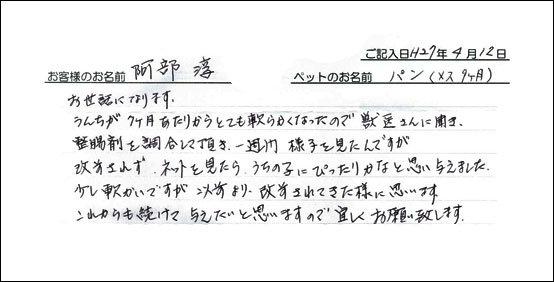 ご記入日H27年4月12日
お客様のお名前 阿部 淳 ペットのお名前 パン(メス 9ヶ月)
お世話になります。
うんちが 7ヶ月あたりからとても軟らかくなったので 獣医さんに聞き、
整腸剤を調合して頂き、一週間 様子を見たんですが
改善されず、ネットを見たら、うちの子にぴったりかなと思い与えました。
少し軟かいですが 以前より、改善されてきた様に思います。
これからも続けて 与えたいと思いますので 宜しくお願い致します。